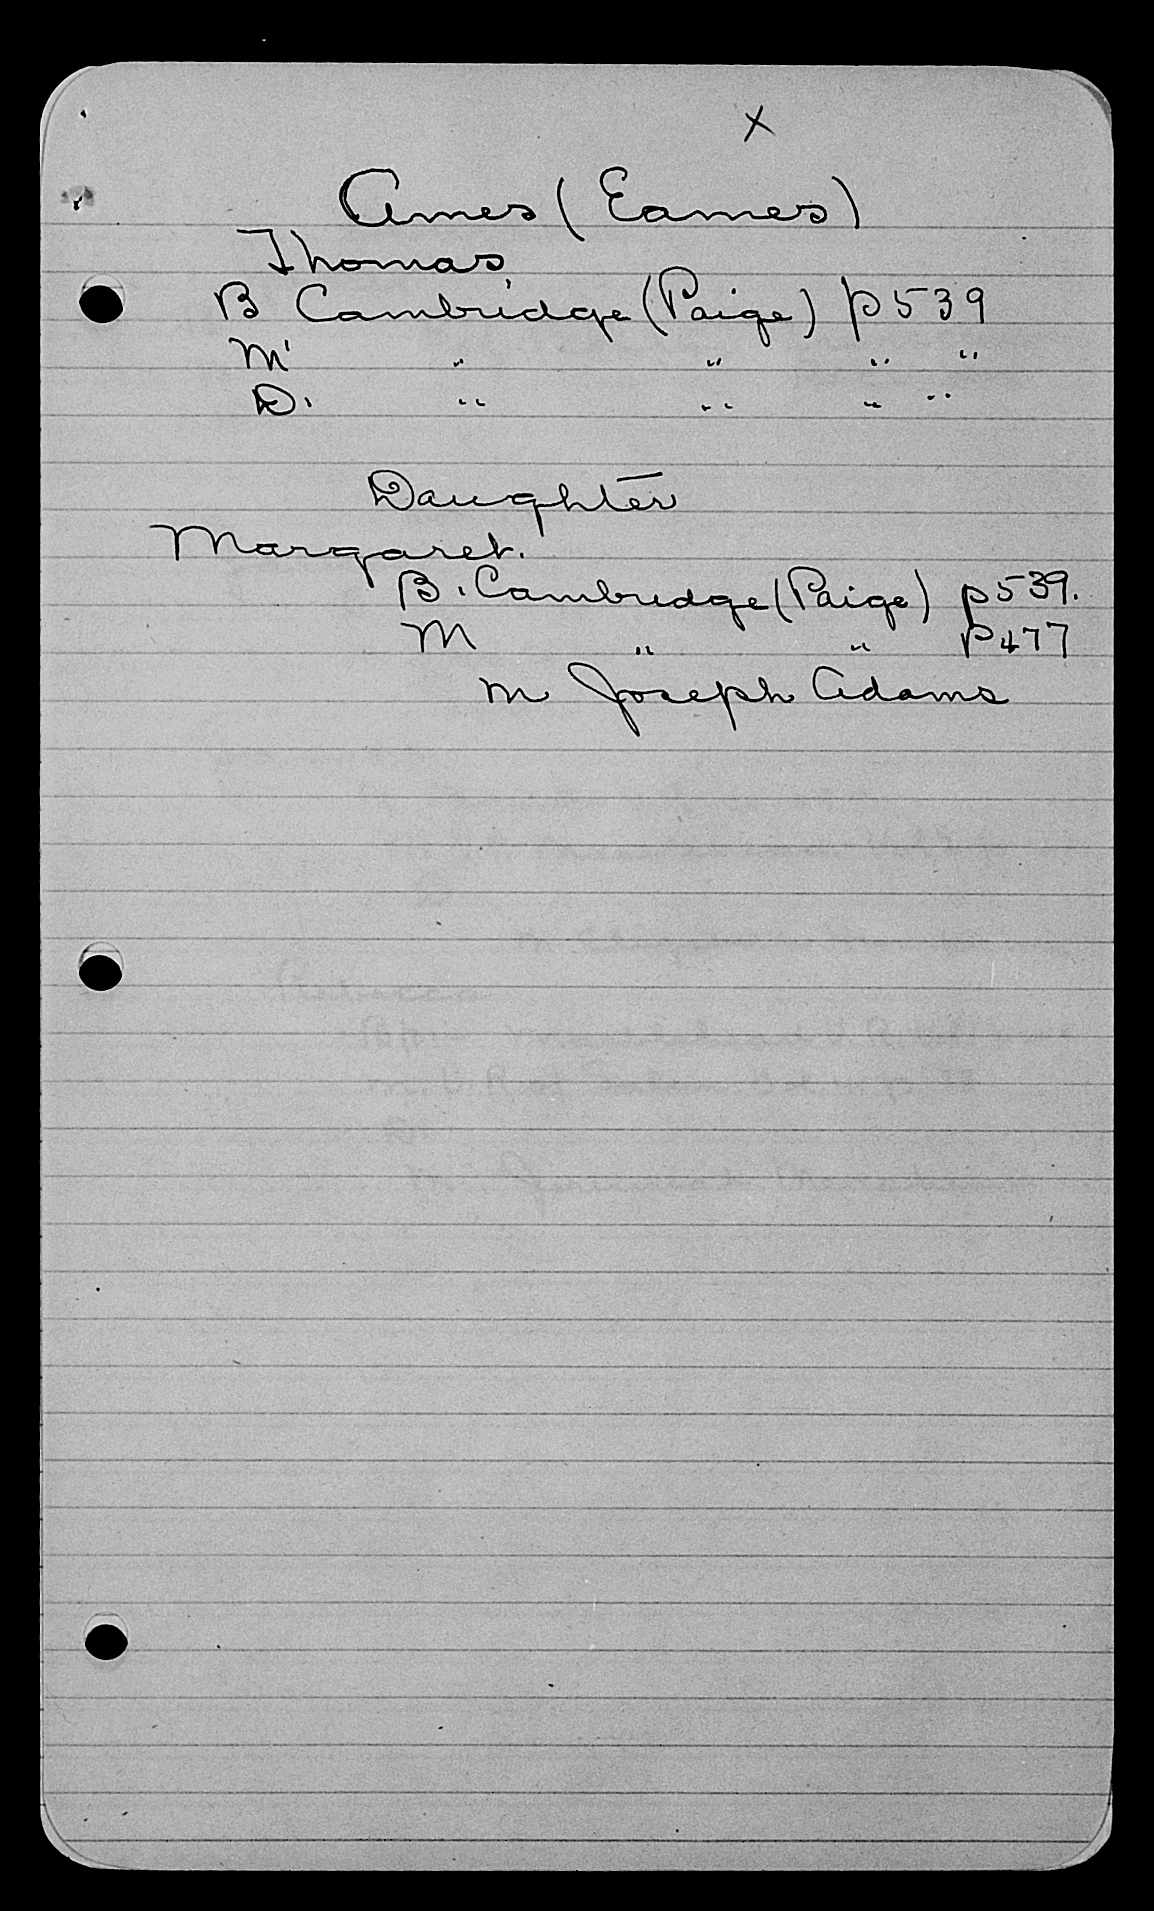 X
Ames (Eames)
Thomas
B Cambridge (Paige) p539
M " " " "
D. " " " "
Daughter
Margaret.
B. Cambridge (Paige) p539.
M " " P477
m Joseph Adams